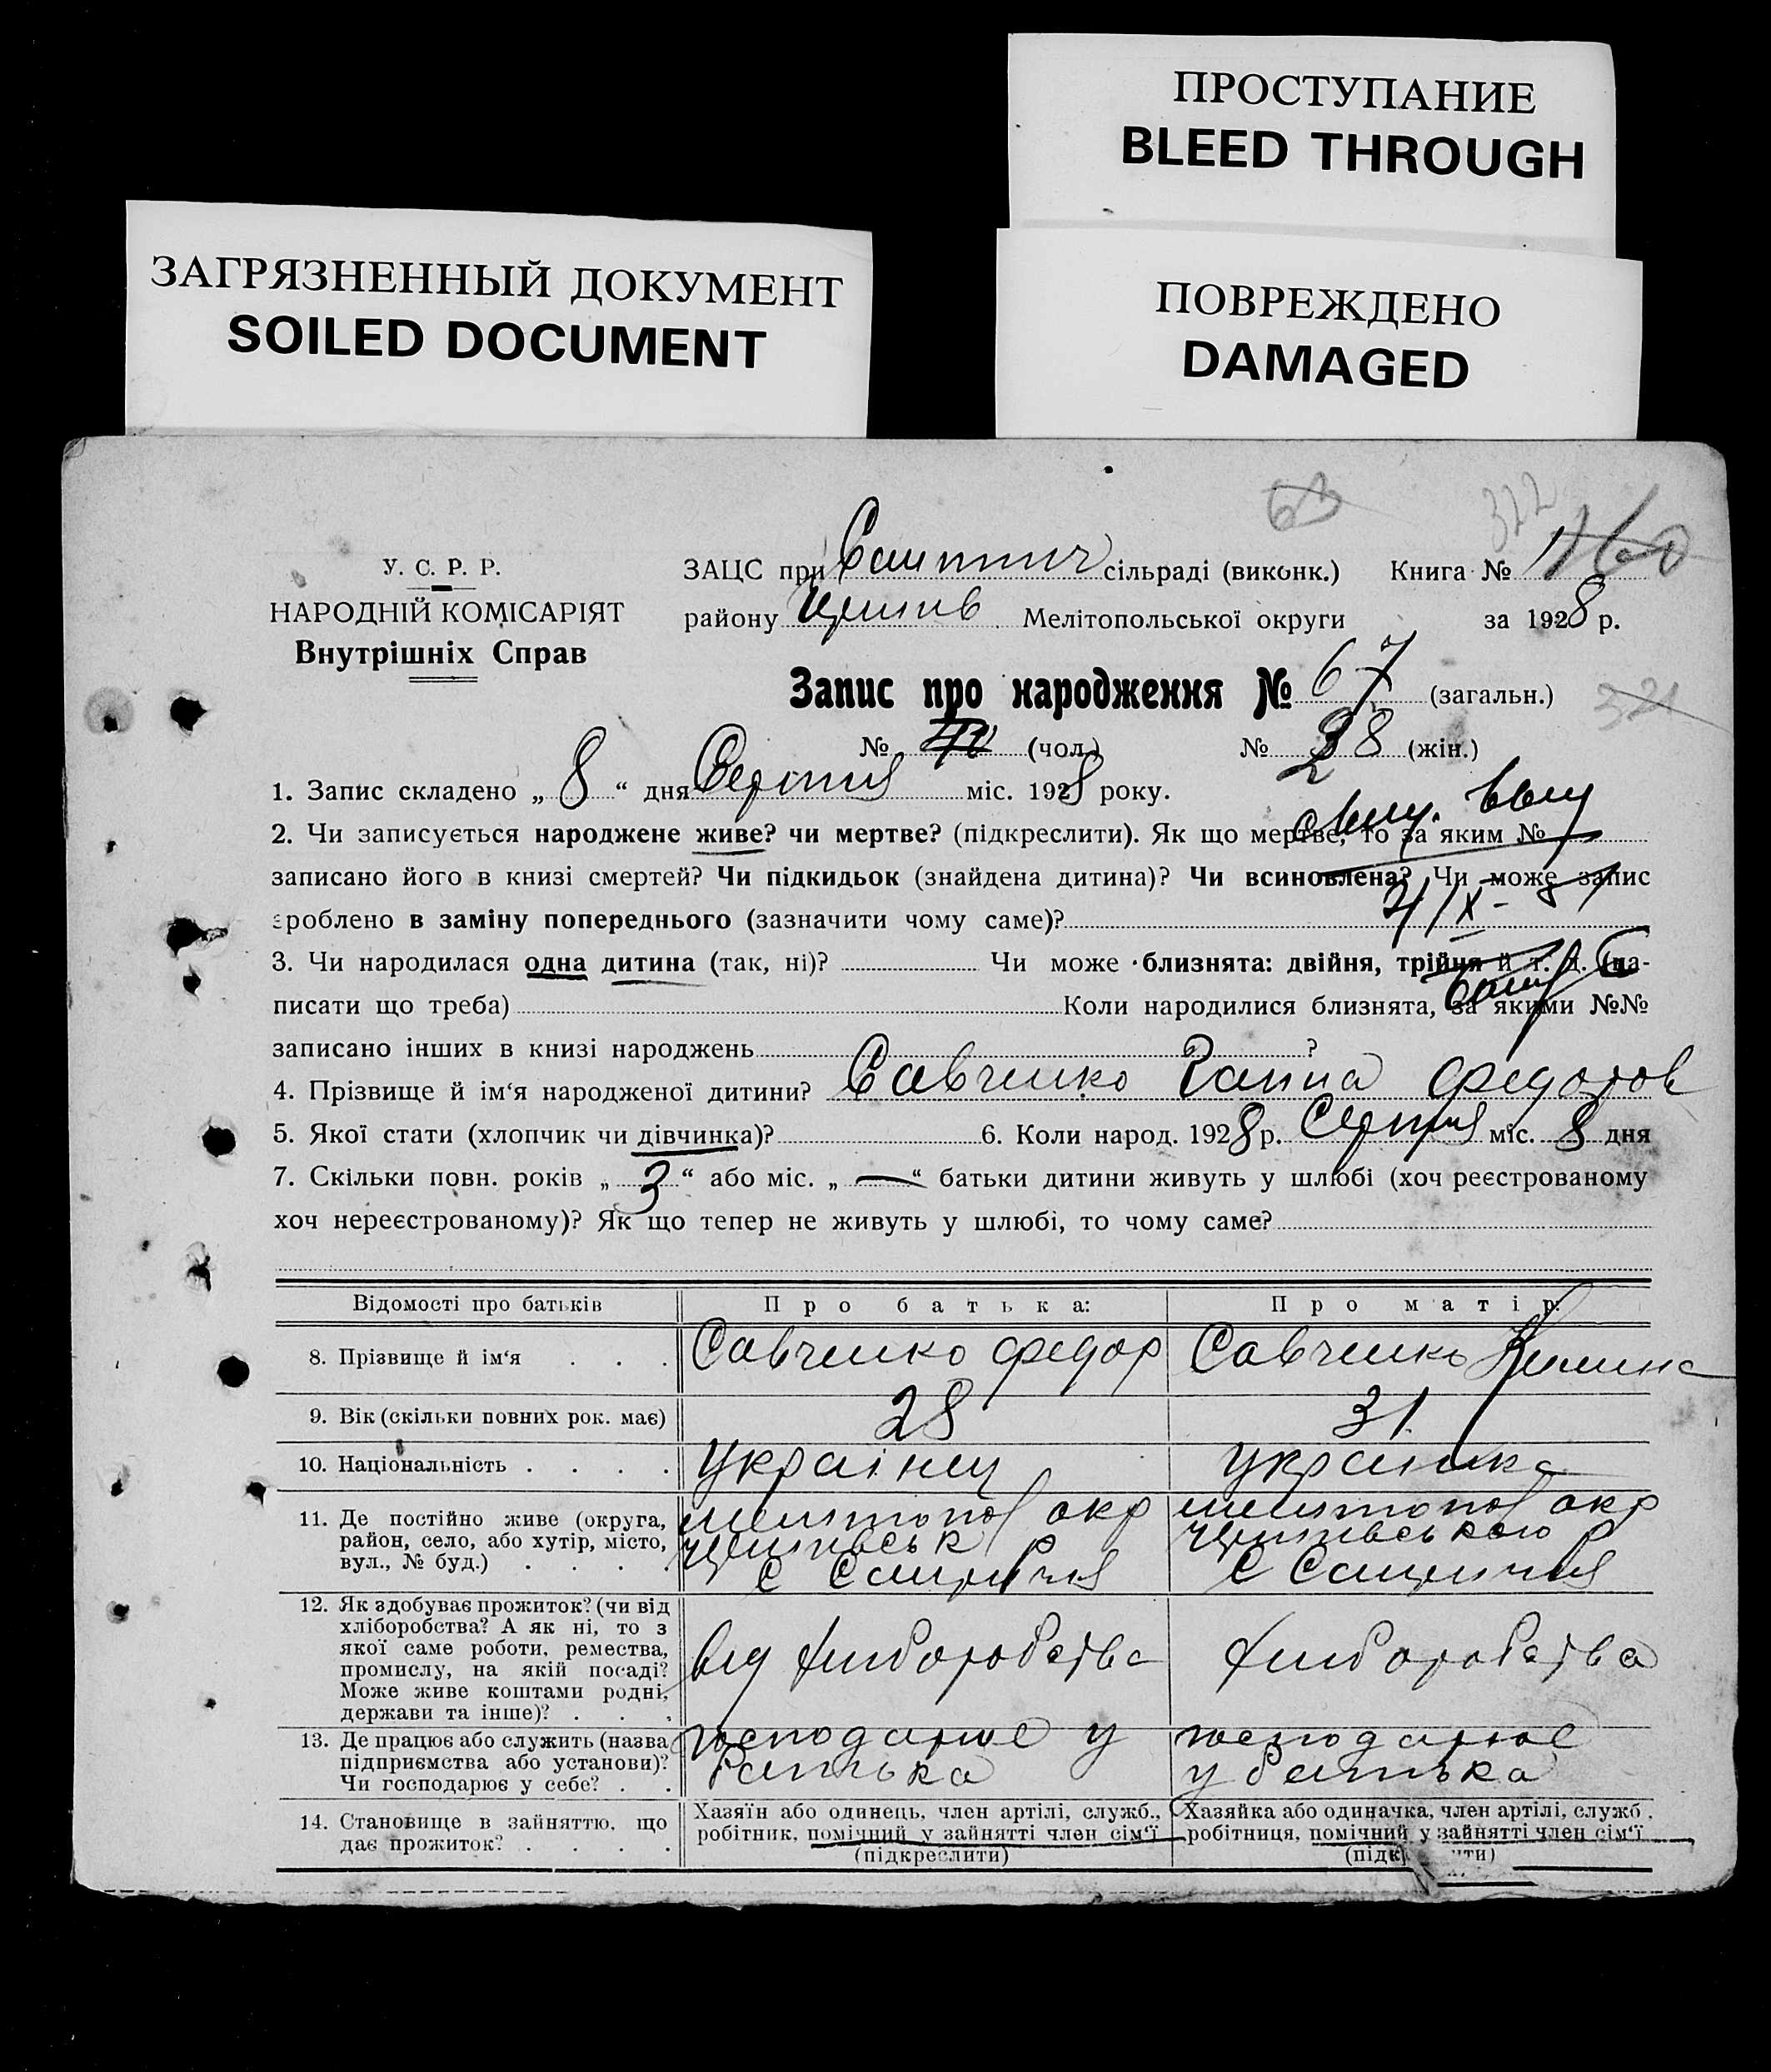 ПРОСТУПАНИЕ
BLEED THROUGH
ЗАГРЯЗНЕННЫЙ ДОКУМЕНТ
SOILED DOCUMENT
ПОВРЕЖДЕНО
DAMAGED
63
322
У. С. Р. Р.
НАРОДНІЙ КОМІСАРІЯТ
Внутрішніх Справ
ЗАЦС при сільраді (виконк.) Книга №
району Мелітопольської округи за 1928 р.
Запис про народження № 67 (загальн.)
321
№ (чол.) № 28 (жін.)
1. Запис складено „ 8 “ дня Серпня міс. 1928 року.
2. Чи записується народжене живе? чи мертве? (підкреслити). Як що мертве, то за яким №
записано його в книзі смертей? Чи підкидьок (знайдена дитина)? Чи всиновлена? Чи може запис
зроблено в заміну попереднього (зазначити чому саме)?
3. Чи народилася одна дитина (так, ні)? Чи може близнята: двійня, трійня й т. д. (на-
писати що треба) Коли народилися близнята, за якими №№
записано інших в книзі народжень ?
4. Прізвище й ім‘я народженої дитини? Савченко Ганна Федоров
5. Якої стати (хлопчик чи дівчинка)? 6. Коли народ. 1928 р. Серпня міс. 8 дня
7. Скільки повн. років „ 3 “ або міс. „ — “ батьки дитини живуть у шлюбі (хоч реєстрованому
хоч нереєстрованому)? Як що тепер не живуть у шлюбі, то чому саме?
Відомості про батьків Про батька: Про матір:
8. Прізвище й ім‘я . . . Савченко Федор Савченко
9. Вік (скільки повних рок. має) 28 31
10. Національність . . . . Украінец Украинка
11. Де постійно живе (округа,
район, село, або хутір, місто,
вул., № буд.) . . . .
Мелитопол окр
с
Мелитопол окр
с
12. Як здобуває прожиток? (чи від
хліборобства? А як ні, то з
якої саме роботи, ремества,
промислу, на якій посаді?
Може живе коштами родні,
держави та інше)? . . .
від хліборобства хліборобства
13. Де працює або служить (назва
підприємства або установи)?
Чи господарює у себе? . .
господарює у
батька
господарює
у батька
14. Становище в зайняттю, що
дає прожиток? . . . .
Хазяїн або одинець, член артілі, служб.,
робітник, помічний у зайнятті член сім‘ї
(підкреслити)
Хазяйка або одиначка, член артілі, служб.
робітниця, помічний у зайнятті член сім‘ї